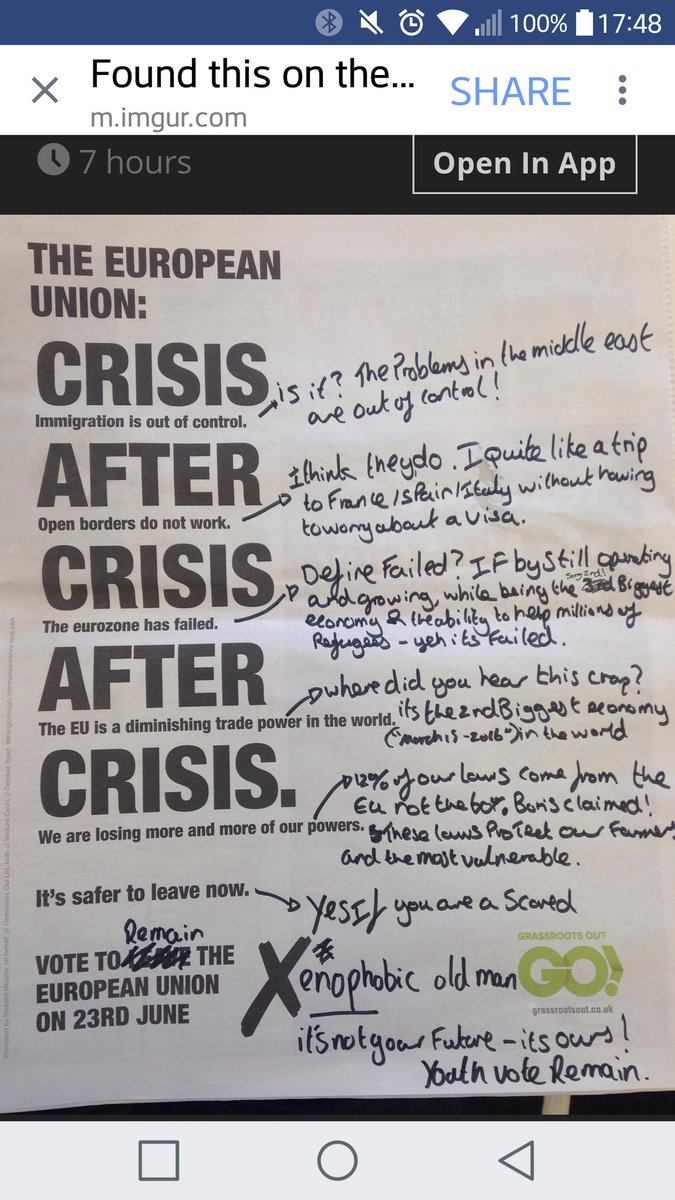 100% 17:48
Found this on the...
m.imgur.com
SHARE
7 hours
Open In App
THE EUROPEAN
UNION:
CRISIS
Immigration is out of control.
is it? The Problems in the middle east
are out of control!
AFTER
Open borders do not work.
I think they do. I Quite like a trip
to France/Spain/Italy without having
to worry about a visa.
CRISIS
The eurozone has failed.
Define Failed? IF by still operating
and growing, while being the 2nd Biggest
economy & the ability to help millions of
Refugees - yeh its Failed.
AFTER
The EU is a diminishing trade power in the world.
where did you hear this crap?
its the 2nd Biggest economy
("march 15-2016") in the world
CRISIS.
We are losing more and more of our powers.
12% of our laws come from the
EU not the 60% Boris claimed!
These laws Protect our Farmers
and the most vulnerable.
It's safer to leave now.
Yes If you are a Scared
Xenophobic old man
VOTE TO Remain THE
EUROPEAN UNION
ON 23RD JUNE
GRASSROOTS OUT
GO!
grassrootsout.co.uk
it's not your Future - its ours!
Youth vote Remain.